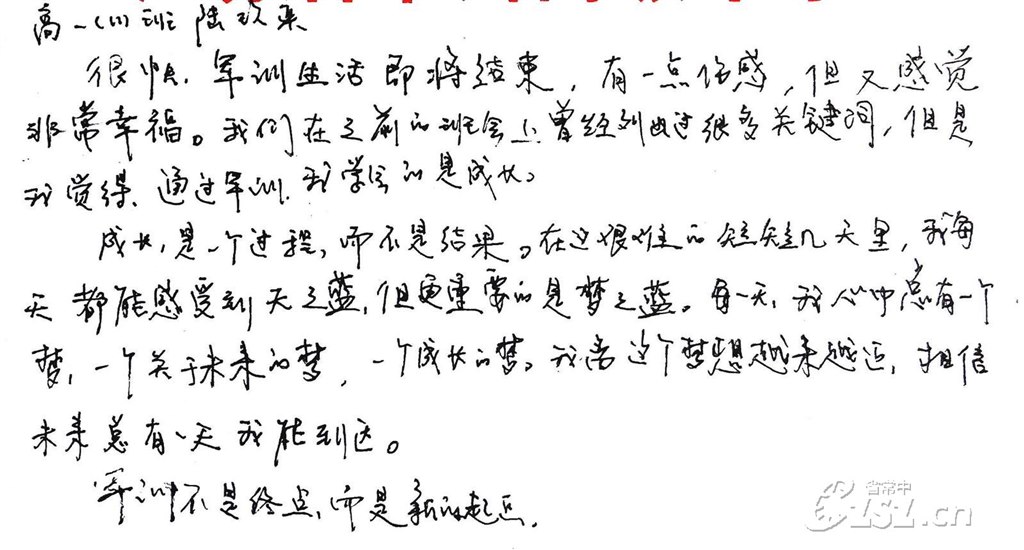 高一(1)班 陆玖来
很快,军训生活即将结束,有一点伤感,但又感觉
非常幸福。我们在之前的班会上曾经列出过很多关键词,但是
我觉得,通过军训,我学会的是成长。
成长,是一个过程,而不是结果。在这艰难的短短几天里,我每
天都能感受到天之蓝,但更重要的是梦之蓝。每一天,我心中总有一个
梦,一个关于未来的梦,一个成长的梦。我离这个梦想越来越近,相信
未来总有一天我能到达。
军训不是终点,而是新的起点.
省常中
CZSZ.cn